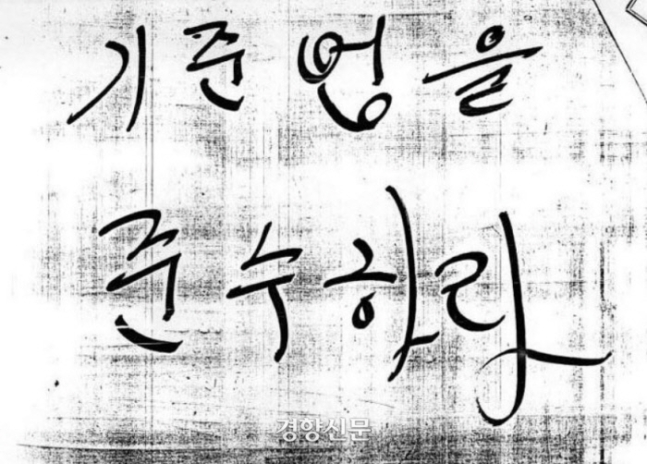 기준법을
준수하라
경향신문